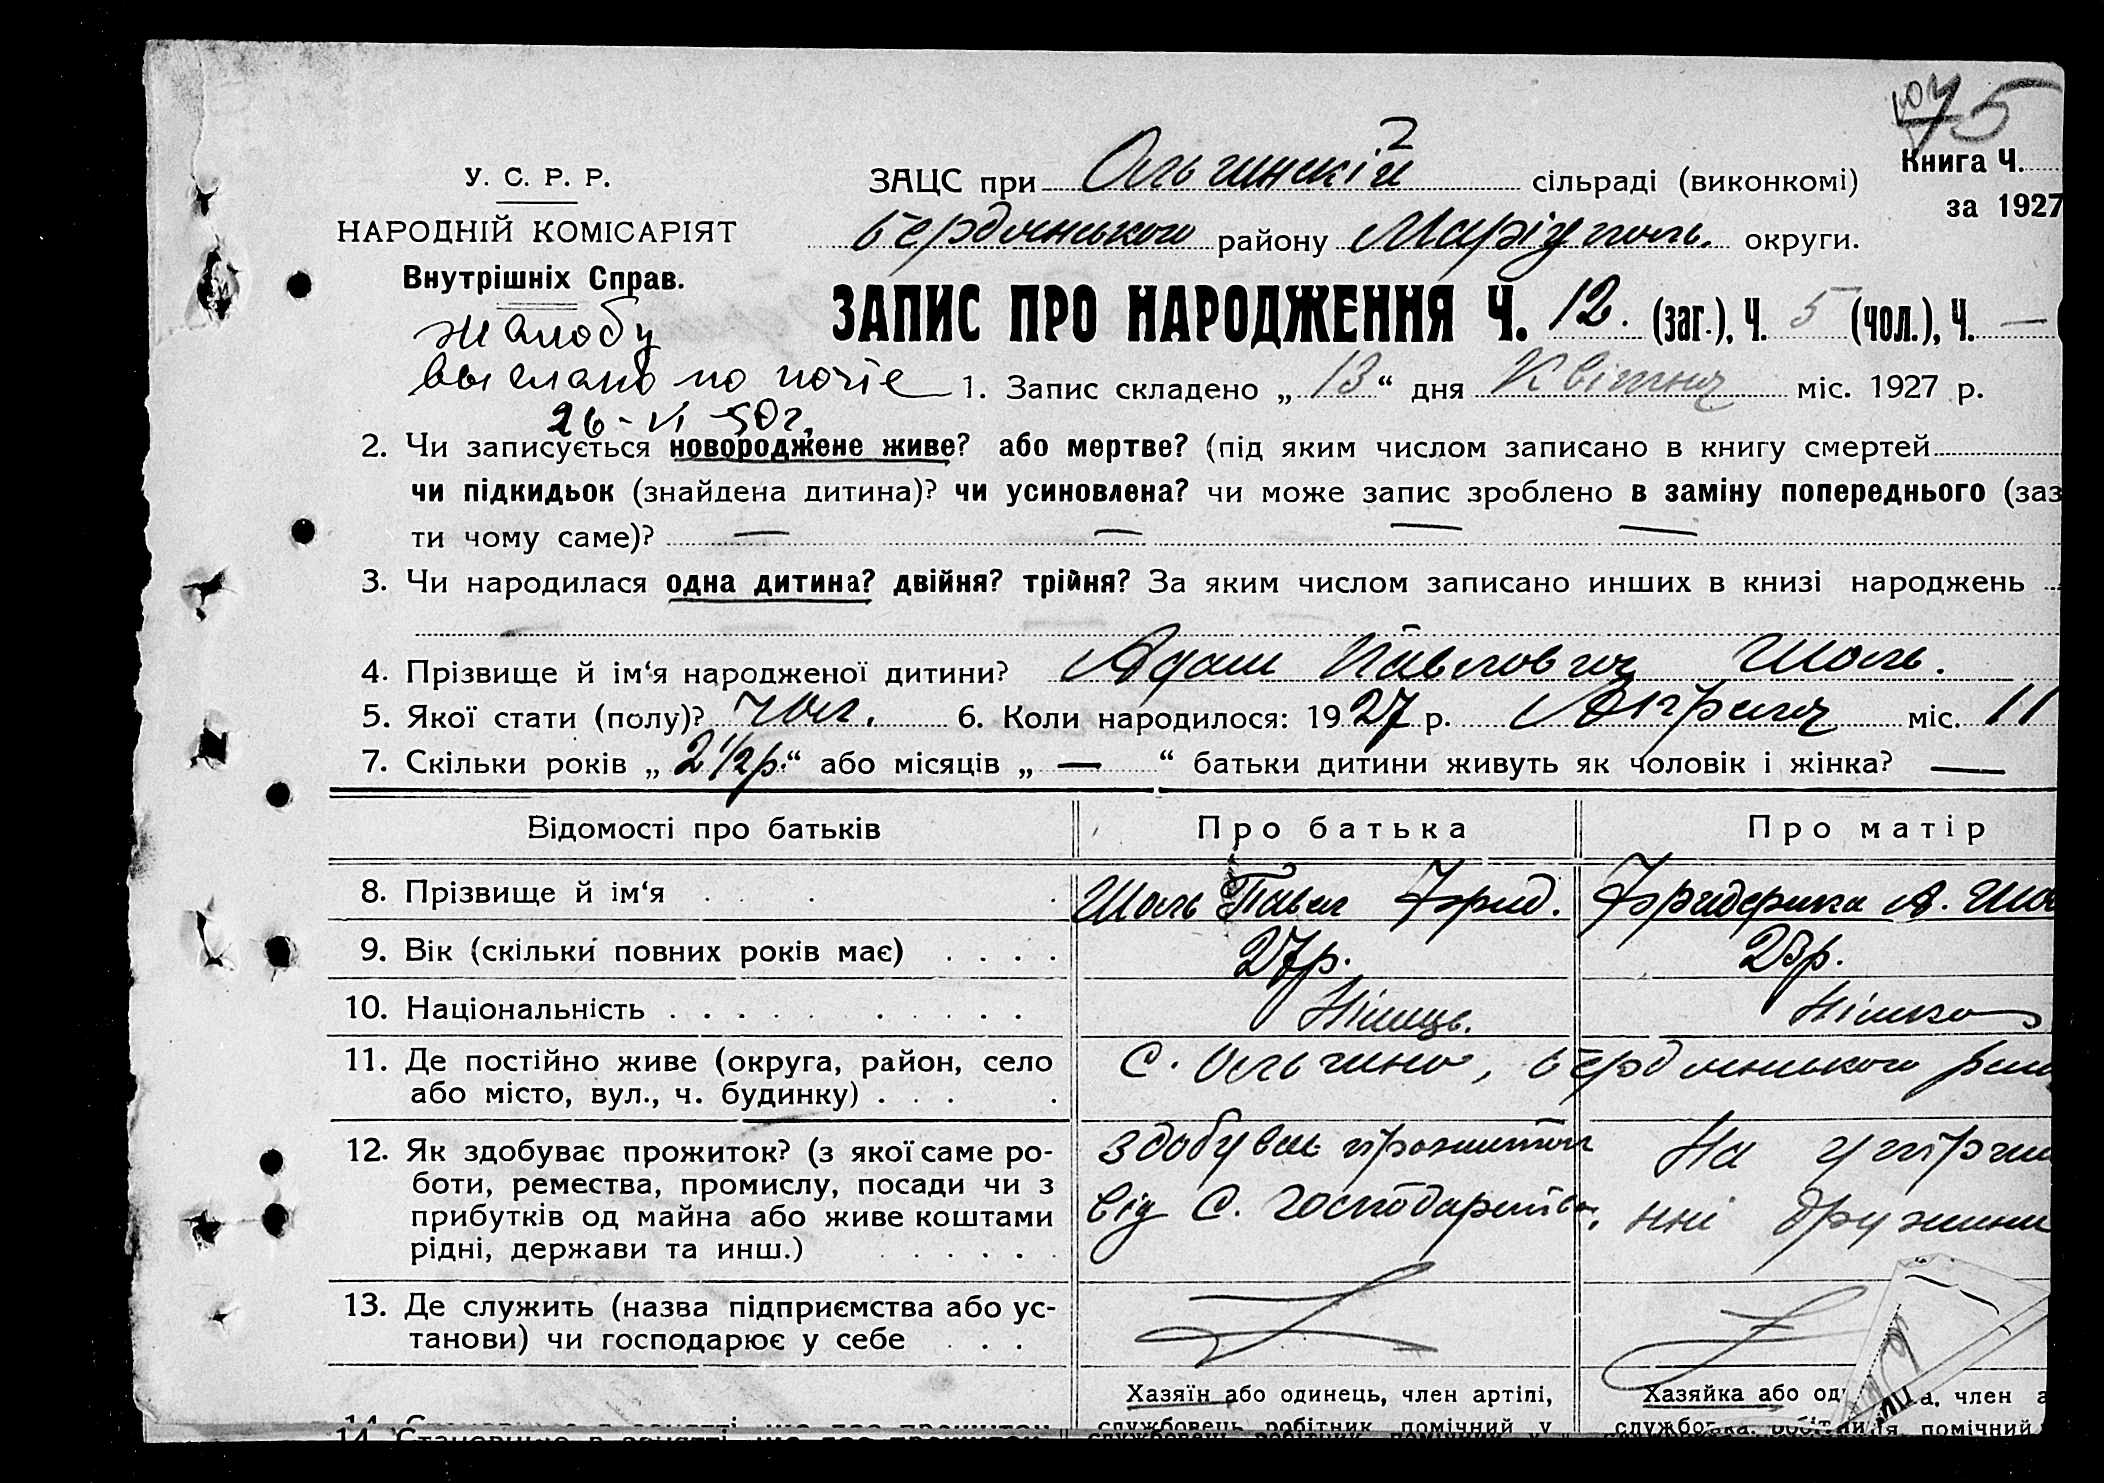 75
У. С. Р. Р.
НАРОДНІЙ КОМІСАРІЯТ
Внутрішніх Справ.
ЗАЦС при Ольгинскій сільраді (виконкомі)
Книга Ч.
за 1927
району Маріупол. округи.
Жалобу
выслано по почте
26-VI-50г.
ЗАПИС ПРО НАРОДЖЕННЯ Ч. 12. (заг.), Ч. 5 (чол.), Ч. —
1. Запис складено „13“ дня Квітня міс. 1927 р.
2. Чи записується новороджене живе? або мертве? (під яким числом записано в книгу смертей
чи підкидьок (знайдена дитина)? чи усиновлена? чи може запис зроблено в заміну попереднього (заз
ти чому саме)? — — — —
3. Чи народилася одна дитина? двійня? трійня? За яким числом записано инших в книзі народжень
4. Прізвище й ім‘я народженої дитини? Адам Павлович Шоль.
5. Якої стати (полу)? чол. 6. Коли народилося: 1927 р. Апреля міс. 11
7. Скільки років „2 1/2 р.“ або місяців „—“ батьки дитини живуть як чоловік і жінка? —
Відомості про батьків Про батька Про матір
8. Прізвище й ім‘я Шоль Павел Фрид. Фридерика А. Шо
9. Вік (скільки повних років має) 27р. 23р.
10. Національність Німець. Німка
11. Де постійно живе (округа, район, село
або місто, вул., ч. будинку) С. Ольгино,
12. Як здобуває прожиток? (з якої саме ро-
боти, ремества, промислу, посади чи з
прибутків од майна або живе коштами
рідні, держави та инш.)
здобував прожиток
від С. господарства,
На утрима
нні дружини
13. Де служить (назва підприємства або ус-
танови) чи господарює у себе
Хазяїн або одинець, член артілі,
службовець, робітник, помічний у
Хазяйка або од а, член а
помічний
14.